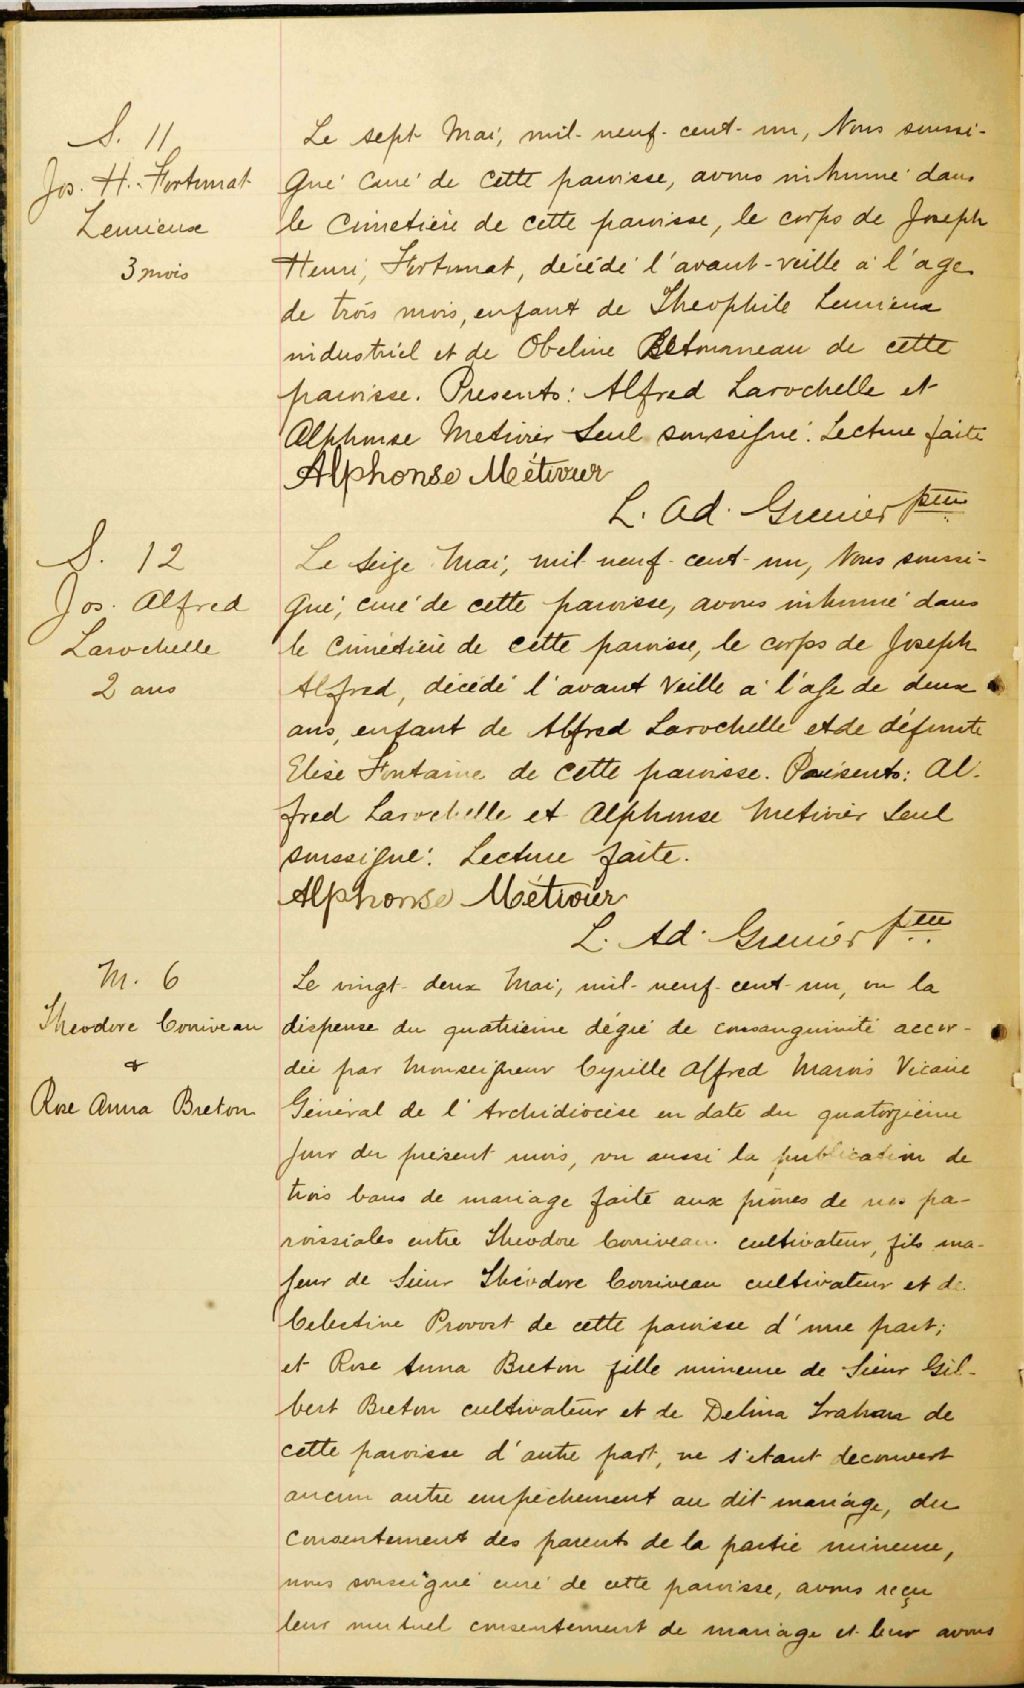 S. 11
Jos. H. Fortunat
Lemieux
3 mois
Le sept Mai, mil-neuf-cent-un, Nous soussi-
gné curé de cette paroisse, avons inhumé dans
le cimetière de cette paroisse, le corps de Joseph
Henri, Fortunat, décédé l'avant-veille à l'age
de trois mois, enfant de Theophile Lemieux
industriel et de Obeline Letourneau de cette
paroisse. Presents: Alfred Larochelle et
Alphonse Metivier seul soussigné. Lecture faite
Alphonse Métivier
L. Ad. Grenier ptre
S. 12
Jos. Alfred
Larochelle
2 ans
Le seize Mai, mil neuf-cent-un, Nous soussi-
gné, curé de cette paroisse, avons inhumé dans
le cimetière de cette paroisse, le corps de Joseph
Alfred, décédé l'avant veille à l'age de deux
ans, enfant de Alfred Larochelle et de défunte
Elise Fontaine de cette paroisse. Présents: Al-
fred Larochelle et Alphonse Metivier seul
soussigné. Lecture faite.
Alphonse Métivier
L. Ad. Grenier ptre
M. 6
Theodore Corriveau
&
Rose Anna Breton
Le vingt-deux Mai, mil-neuf-cent-un, vu la
dispense du quatrième dégré de consanguinité accor-
dée par Monseigneur Cyrille Alfred Marois Vicaire
Général de l'Archidiocèse en date du quatorzième
jour du présent mois, vu aussi la publication de
trois bans de mariage faite aux prônes de nos pa-
roissiales entre Theodore Corriveau cultivateur, fils ma-
jeur de Sieur Théodore Corriveau cultivateur et de
Celestine Provost de cette paroisse d'une part;
et Rose Anna Breton fille mineure de Sieur Gil-
bert Breton cultivateur et de Delina Trahan de
cette paroisse d'autre part, ne s'étant decouvert
aucun autre empêchement au dit mariage, du
consentement des parents de la partie mineure,
nous soussigné curé de cette paroisse, avons reçu
leur mutuel consentement de mariage et leur avons